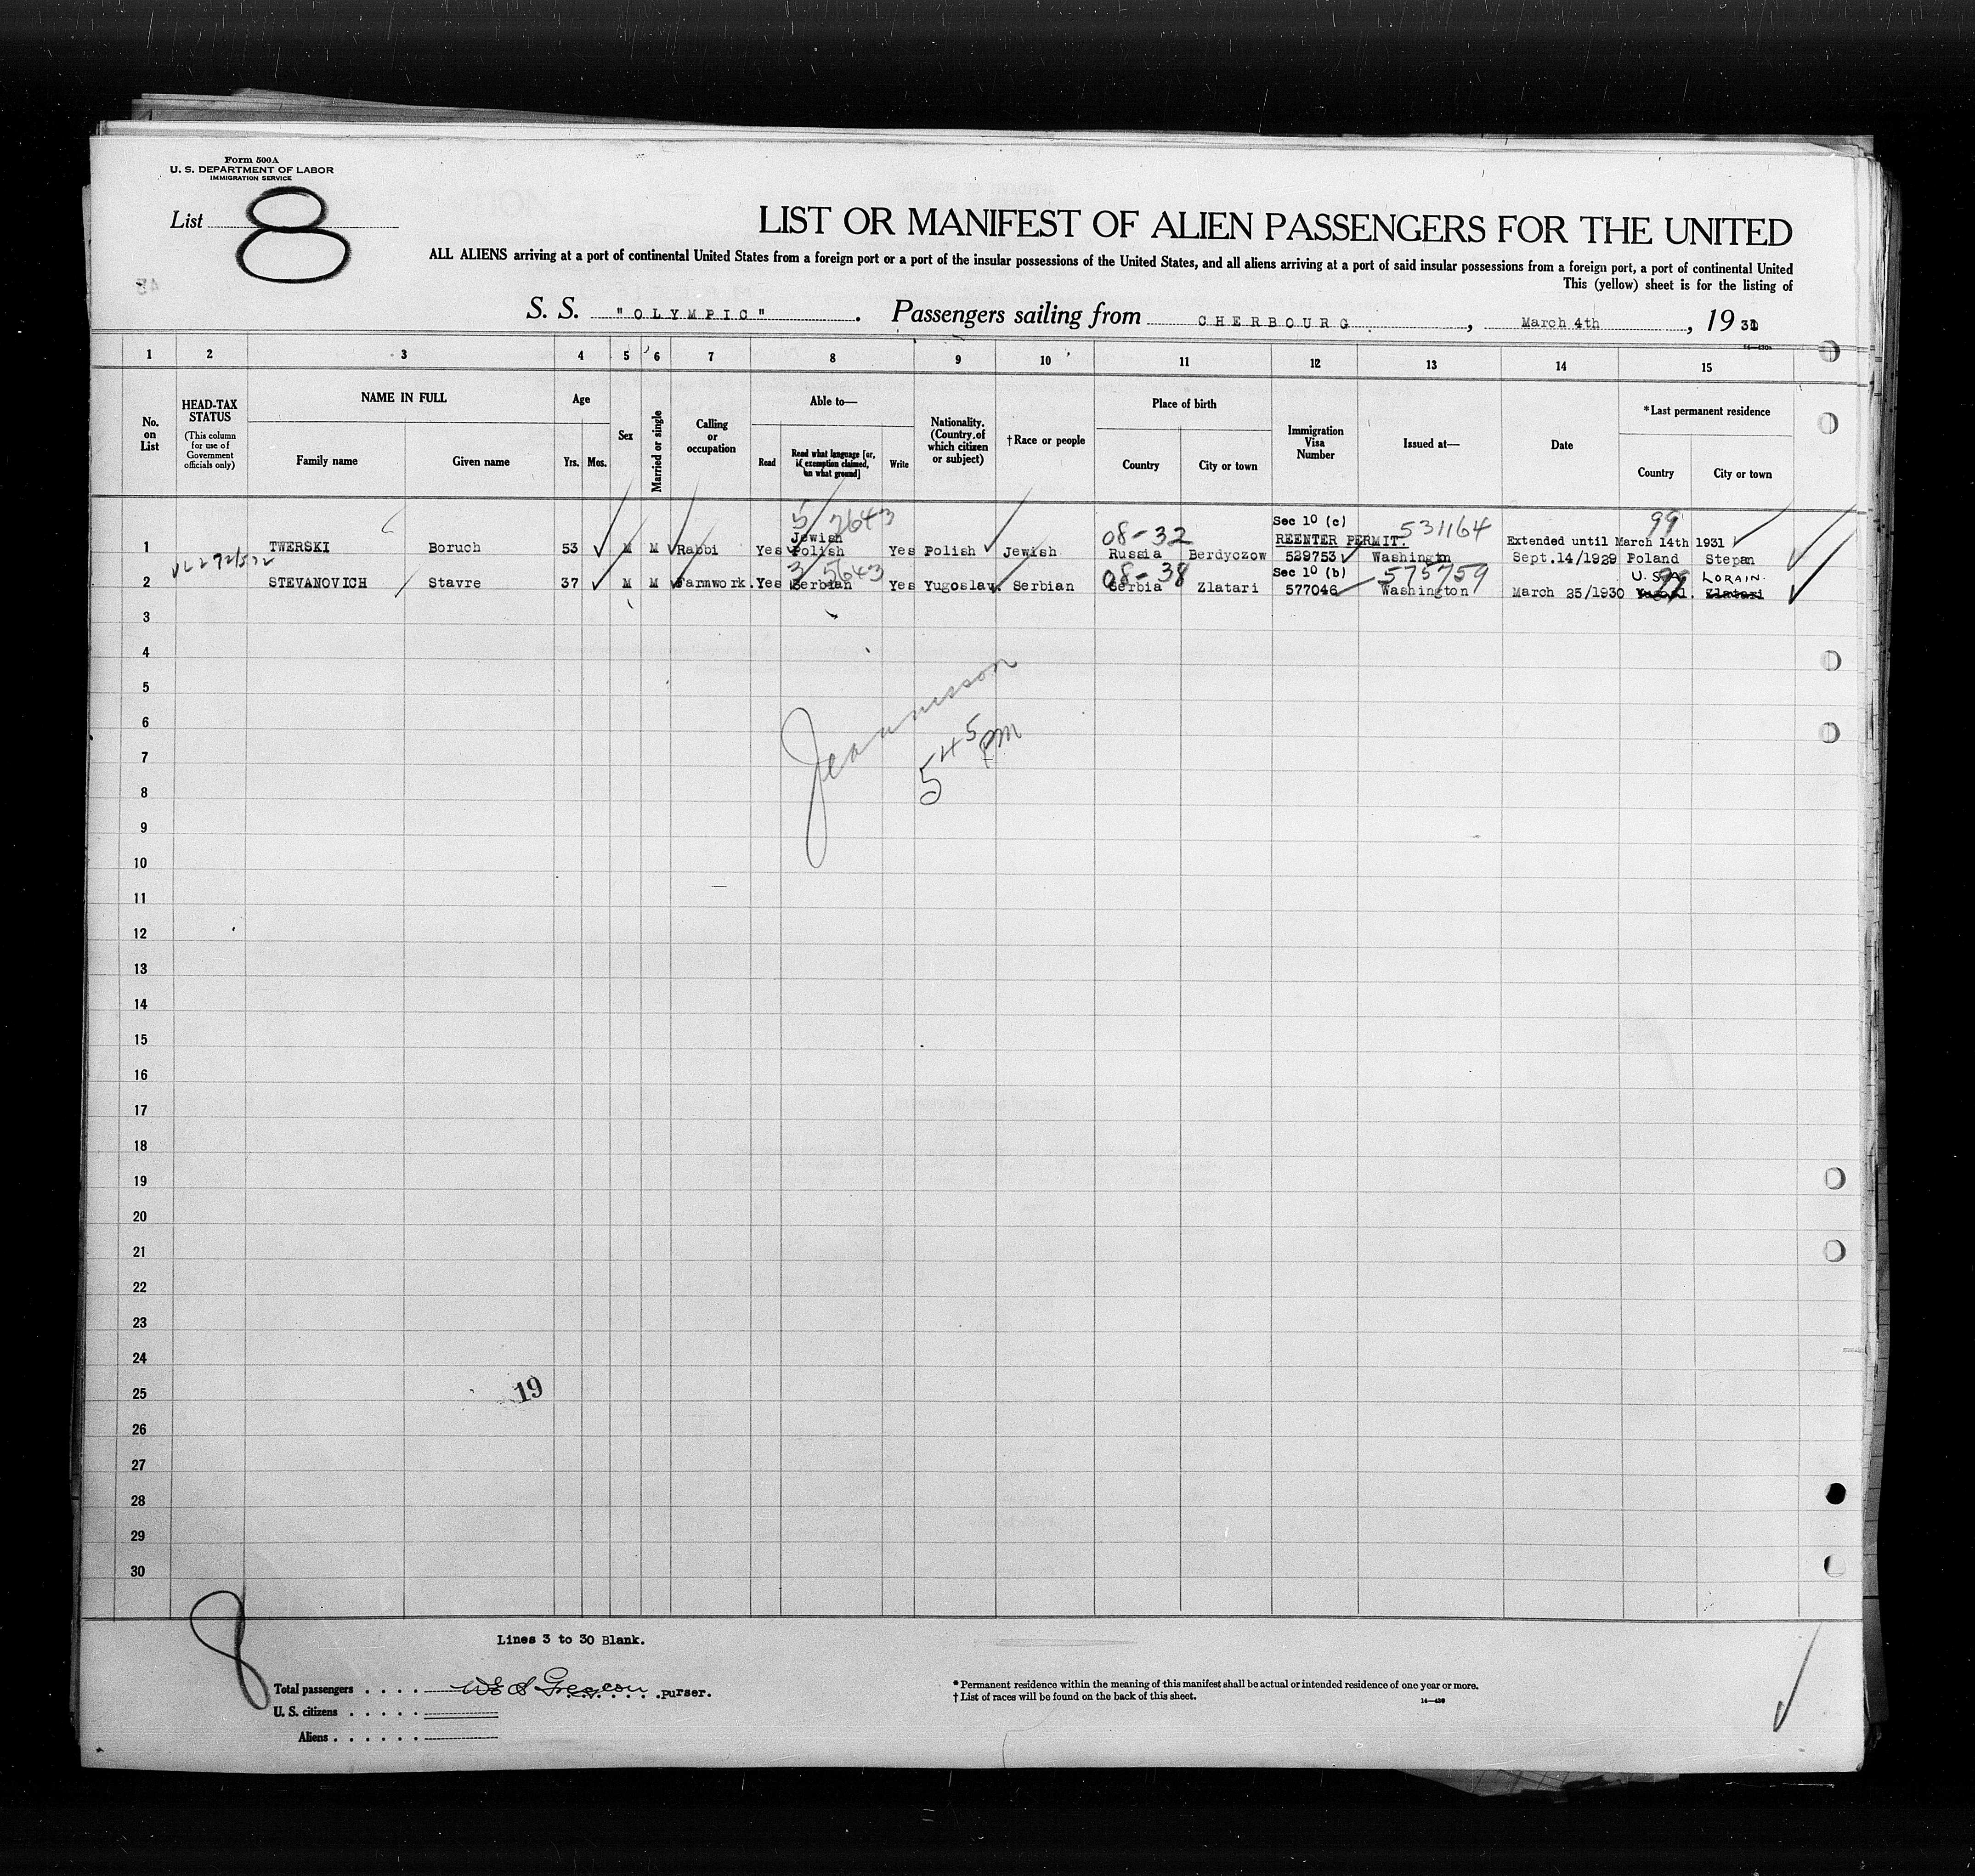 Form 500A
U. S. DEPARTMENT OF LABOR
IMMIGRATION SERVICE
List 8
LIST OR MANIFEST OF ALIEN PASSENGERS FOR THE UNITED
ALL ALIENS arriving at a port of continental United States from a foreign port or a port of the insular possessions of the United States, and all aliens arriving at a port of said insular possessions from a foreign port, a port of continental United
This (yellow) sheet is for the listing of
S. S. "OLYMPIC". Passengers sailing from CHERBOURG, March 4th, 1931
1 2 3 4 5 6 7 8 9 10 11 12 13 14 15
No. on List
HEAD-TAX STATUS
(This column for use of Government officials only)
NAME IN FULL
Family name Given name
Age
Yrs. Mos.
Sex
Married or single
Calling or occupation
Able to—
Read
Read what language [or, if exemption claimed, on what ground]
Write
Nationality. (Country of which citizen or subject)
†Race or people
Place of birth
Country City or town
Immigration Visa Number
Issued at—
Date
*Last permanent residence
Country City or town
5/2643 99
Jewish 08-32 Sec 10 (c) 531164
REENTER PERMIT. Extended until March 14th 1931
1 TWERSKI Boruch 53 M M Rabbi Yes Polish Yes Polish Jewish Russia Berdyczow 529753 Washingtn Sept.14/1929 Poland Stepan
3/5643 08-38 Sec 10 (b) 575759 U.S.A. LORAIN.
2 STEVANOVICH Stavre 37 M M Farmwork. Yes Serbian Yes Yugoslav. Serbian Serbia Zlatari 577046 Washington March 25/1930 Yugosl. Zlatari
3
4
5
6
7
8
9
10
11
12
13
14
15
16
17
18
19
20
21
22
23
24
25
26
27
28
29
30
5 45 pm
19
8
Lines 3 to 30 Blank.
Total passengers . . . . purser.
U. S. citizens . . . . .
Aliens . . . . . .
* Permanent residence within the meaning of this manifest shall be actual or intended residence of one year or more.
† List of races will be found on the back of this sheet.
14—430